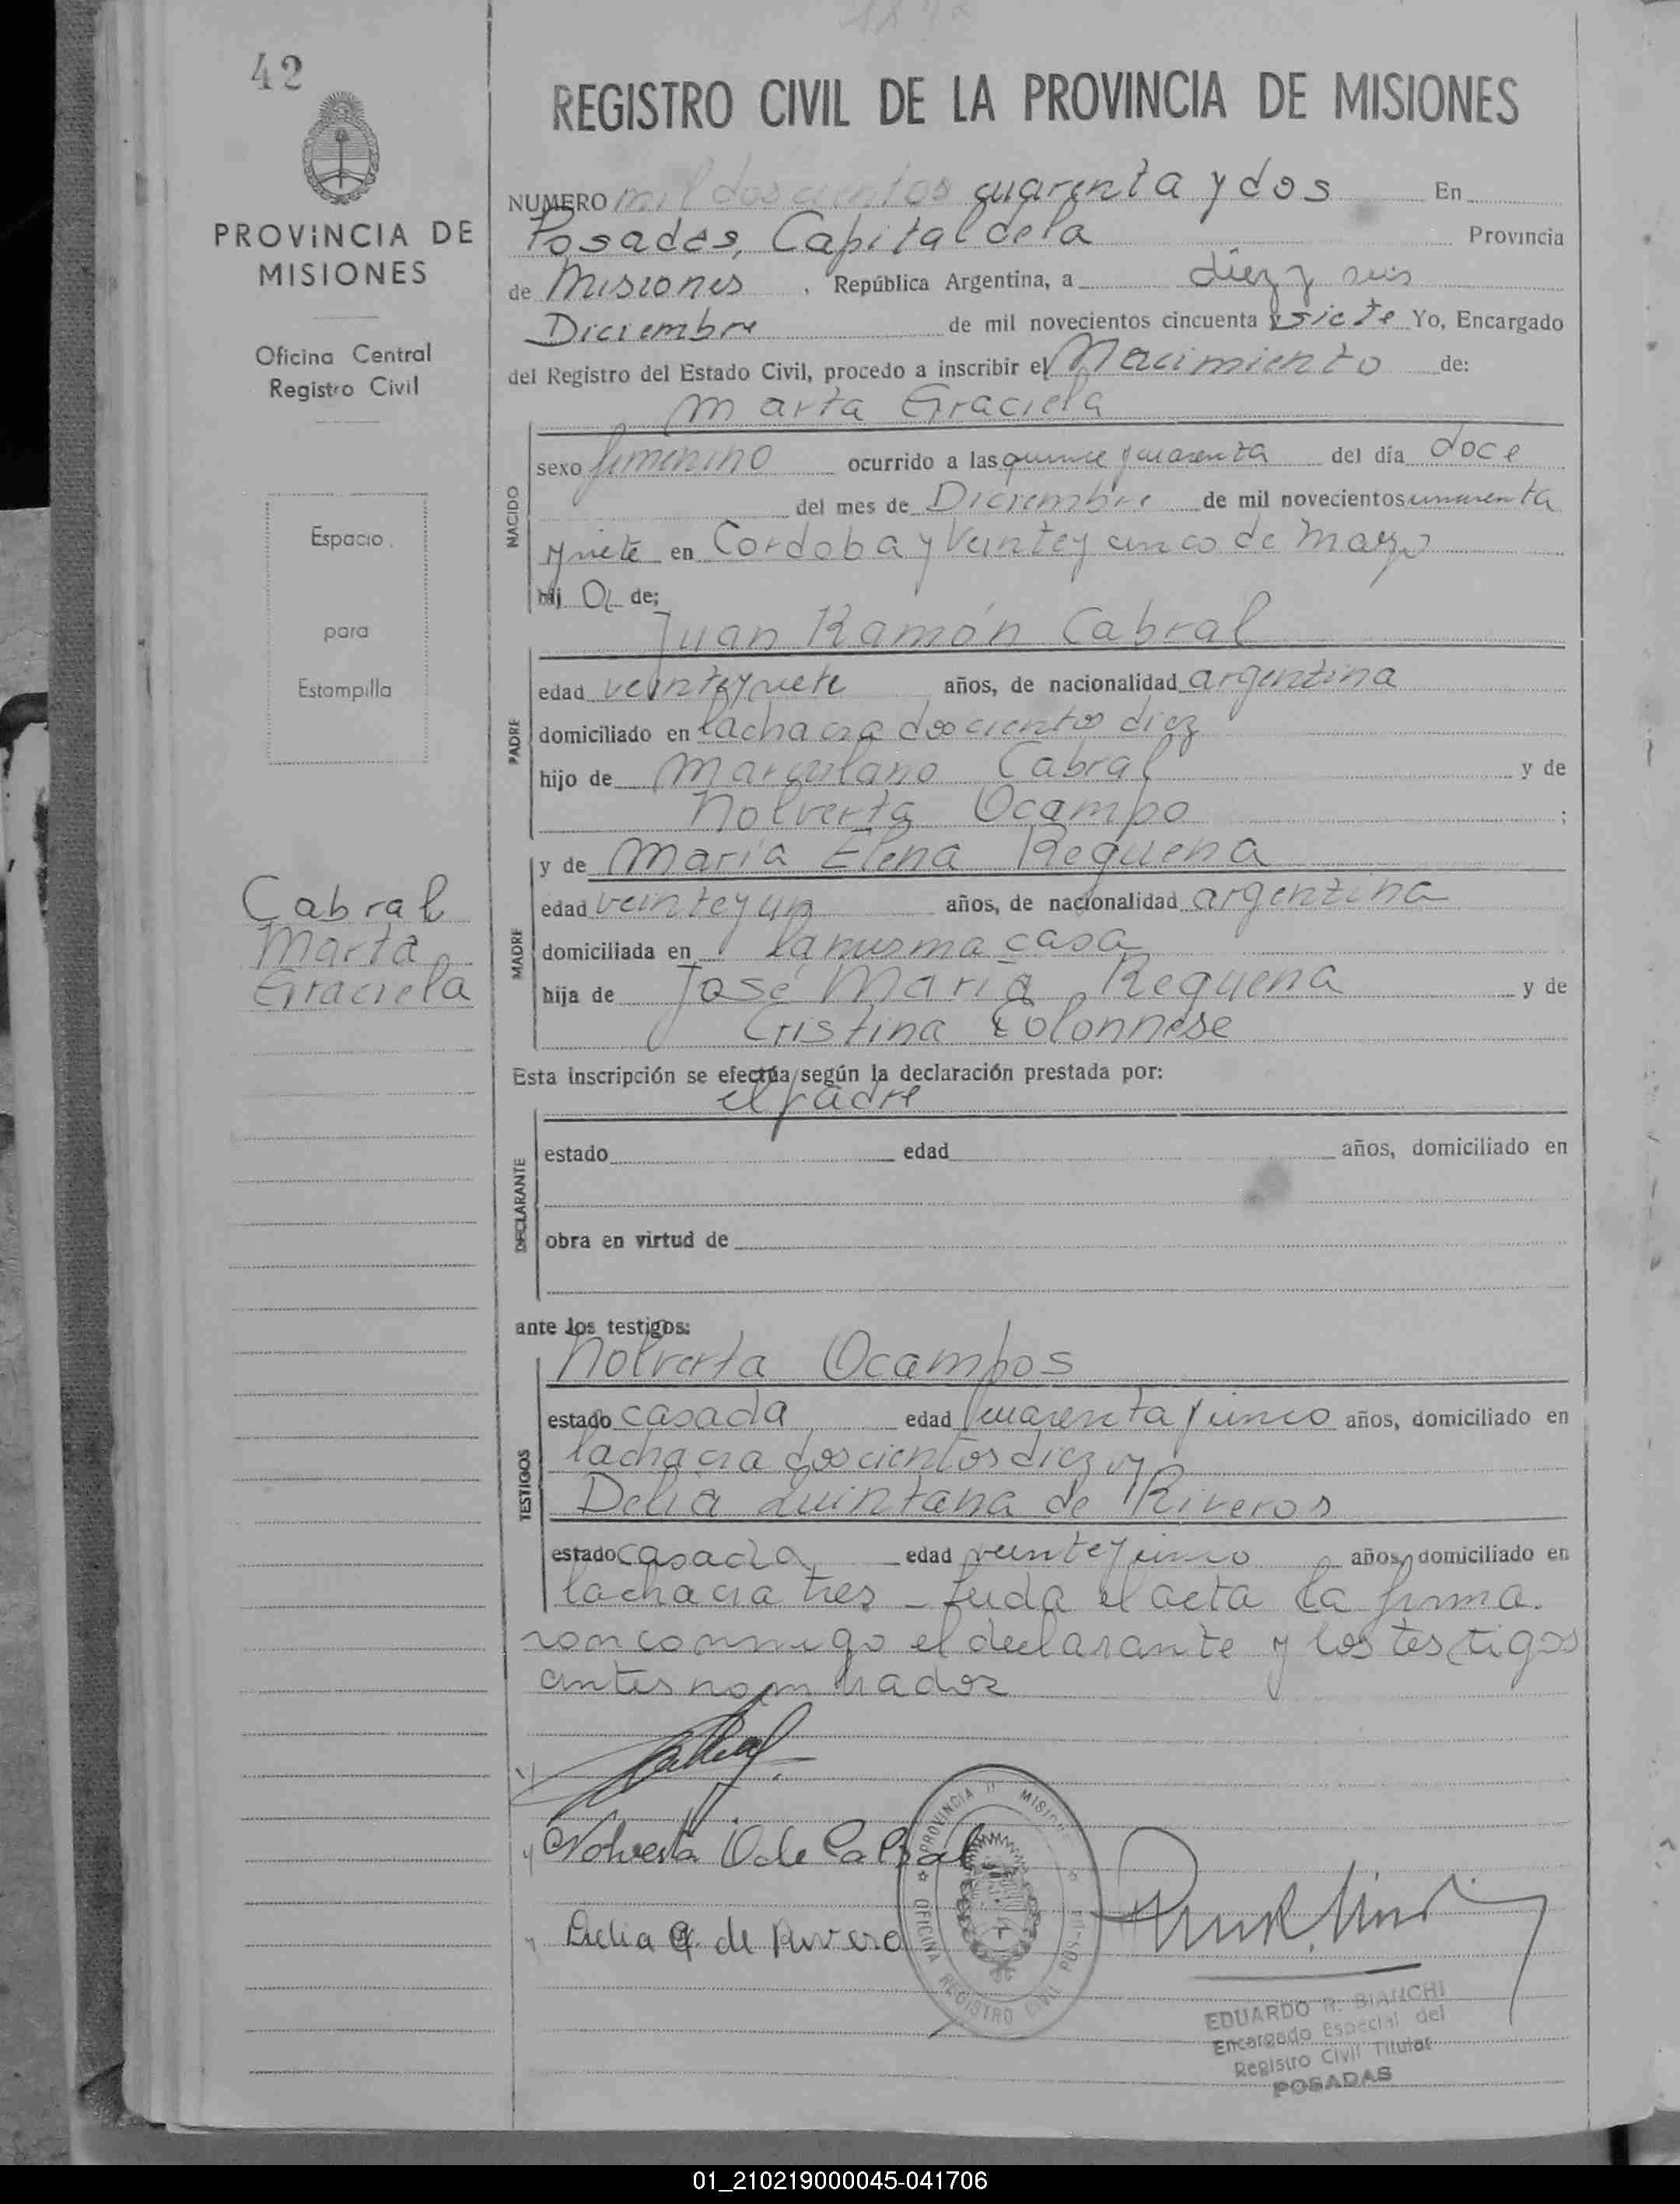 42
PROVINCIA DE
MISIONES
Oficina Central
Registro Civil
Espacio
para
Estampilla
Cabral
Marta
Graciela
REGISTRO CIVIL DE LA PROVINCIA DE MISIONES
NUMERO mil doscientos cuarenta y dos En
Posadas, Capital de la Provincia
de Misiones, República Argentina, a diez y seis
Diciembre de mil novecientos cincuenta y siete Yo, Encargado
del Registro del Estado Civil, procedo a inscribir el Nacimiento de:
Marta Graciela
NACIDO
sexo femenino ocurrido a las quince y cuarenta del día doce
del mes de Diciembre de mil novecientos cincuenta
y siete en Cordoba y Veinte y cinco de Mayo
hij a de;
Juan Ramón Cabral
PADRE
edad veinte y siete años, de nacionalidad argentina
domiciliado en la chacra doscientos diez
hijo de Marcelano Cabral y de
Nolverta Ocampo ;
y de María Elena Requena
MADRE
edad veinte y un años, de nacionalidad argentina
domiciliada en la misma casa
hija de José María Requena y de
Cristina Colonnese
Esta inscripción se efectúa según la declaración prestada por:
el padre
DECLARANTE
estado edad años, domiciliado en
obra en virtud de
ante los testigos:
Nolverta Ocampos
TESTIGOS
estado casada edad cuarenta y cinco años, domiciliado en
la chacra doscientos diez y
Delia Quintana de Riveros
estado casada edad veinte y cinco años, domiciliado en
la chacra tres - Leida el acta la firma.
ron conmigo el declarante y los testigos
antes nombrados
Cabral
Nolverta O de Cabral
Delia Q. de Rivero
PROVINCIA DE MISIONES
OFICINA REGISTRO CIVIL POSADAS
EDUARDO R. BIANCHI
Encargado Especial del
Registro Civil Titular
POSADAS
01_210219000045-041706